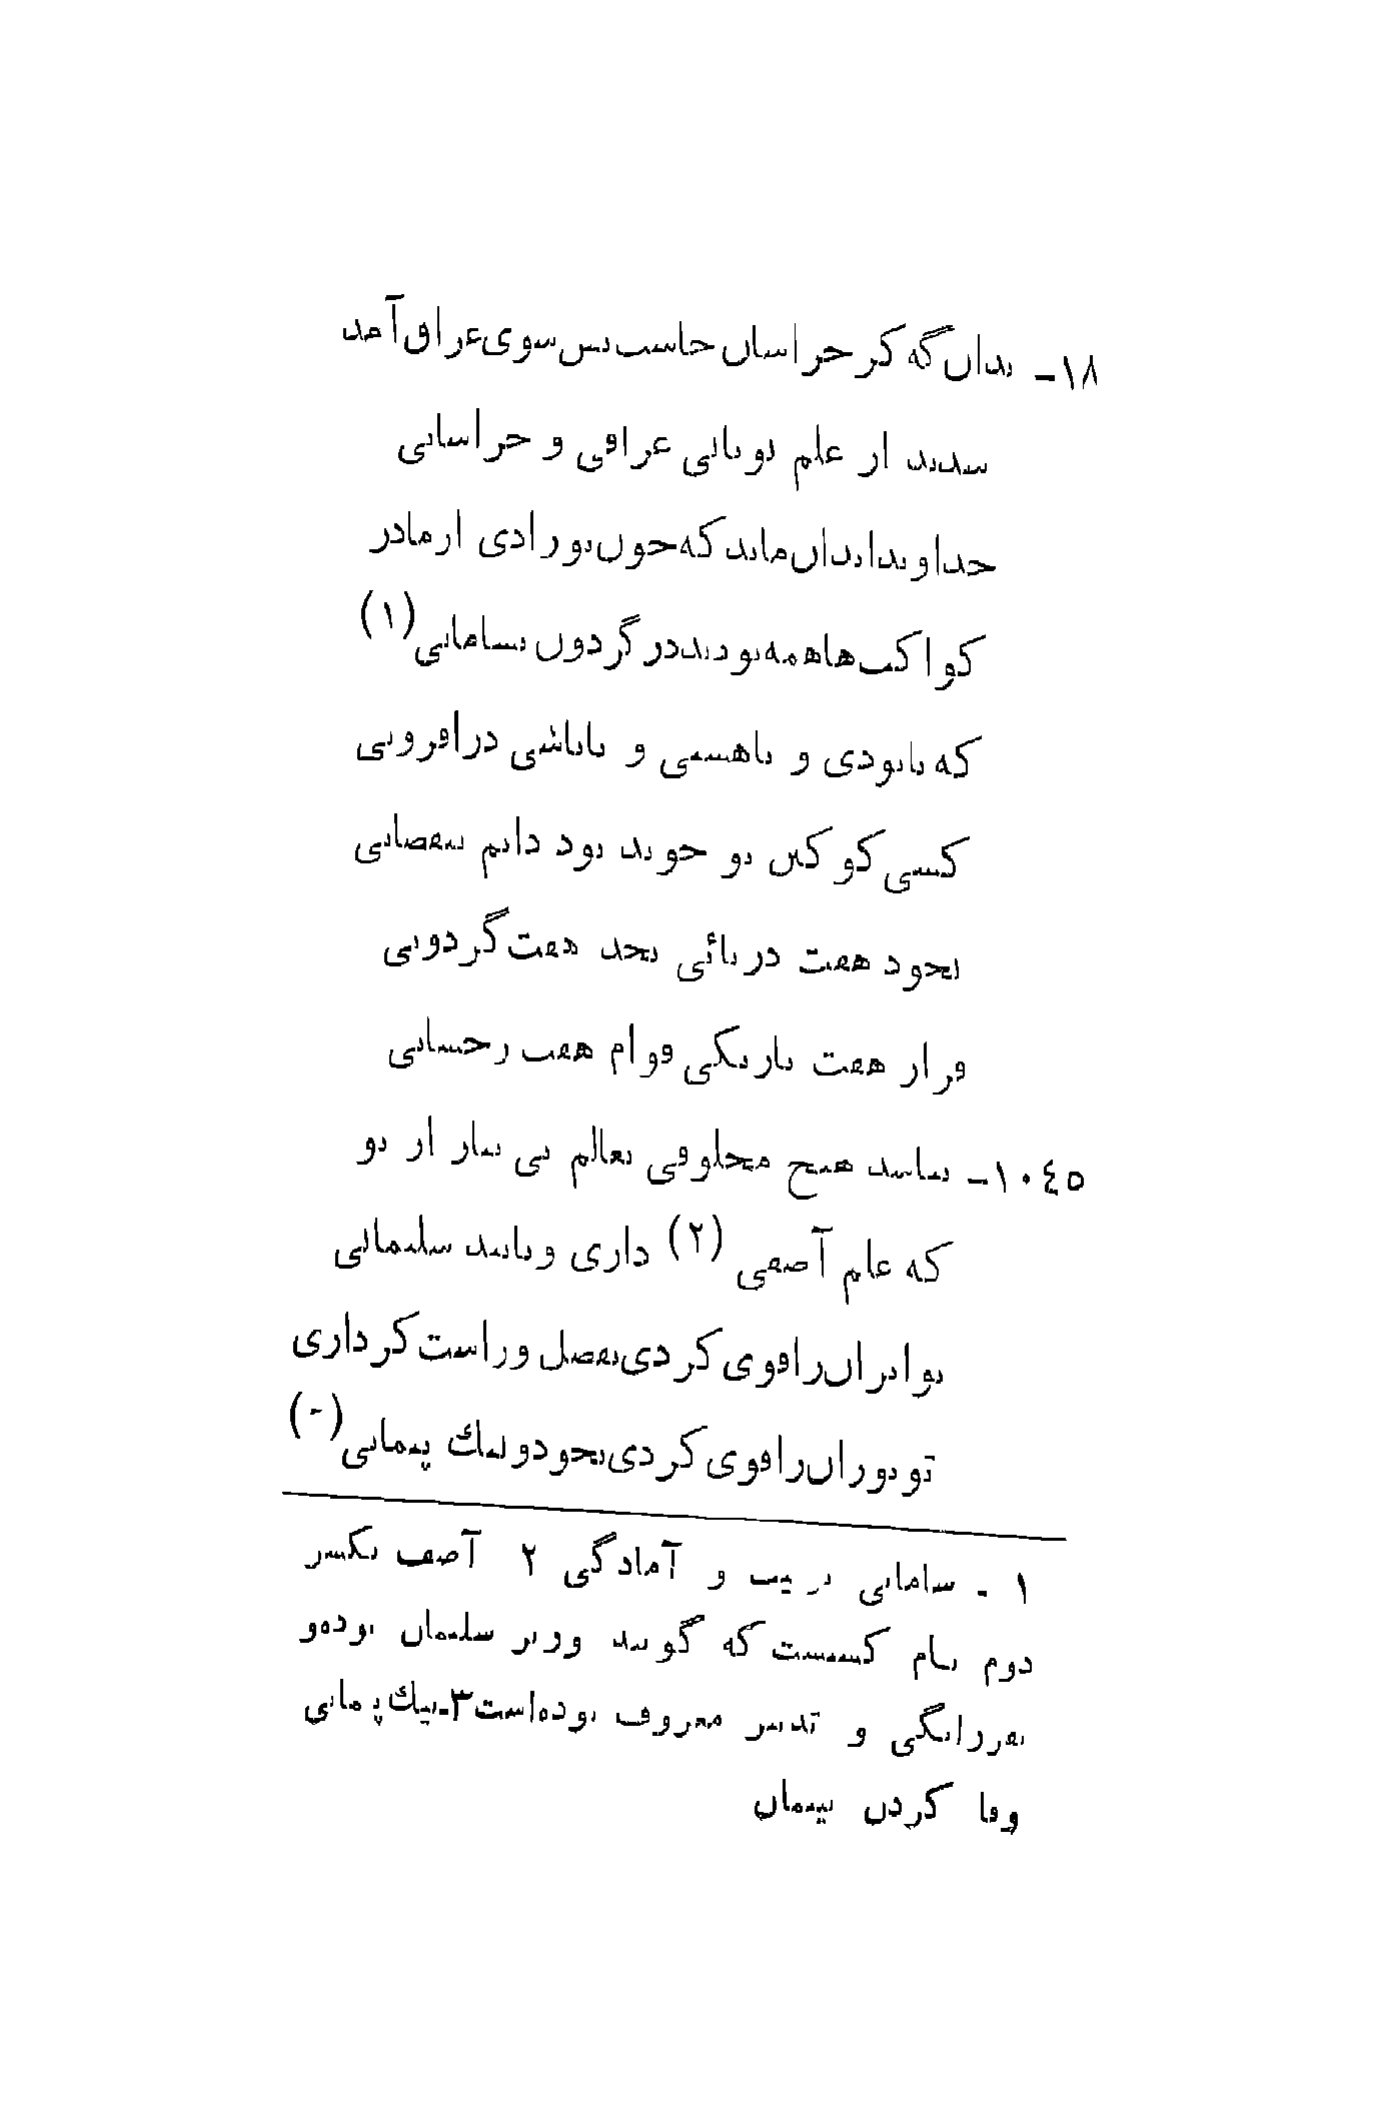 ۱۸- بدان گه کز خراسان خاست پس سوی عراق آمد
شدند از علم تو فانی عراقی و خراسانی
خداوندا بدان ماند که چون تو زادی از مادر
کواکب‌ها همه بودند در گردون بسامانی (۱)
که تا بودی و تا هستی و تا باشی در افزونی
کسی کو کین تو جوید بود دایم بنقصانی
بجود هفت دریائی بجد هفت گردونی
قرار هفت تاریکی قوام هفت رخشانی
۱۰٤٥- نباشد هیچ مخلوقی بعالم بی نیاز از تو
که علم آصفی (۲) داری و تایید سلیمانی
تو ایران را قوی کردی بفضل و راست کرداری
تو توران را قوی کردی بجود و نیك پیمانی (-)
۱ - سامانی و آمادگی ۲ آصف بکسر
دوم نام کسیست که گویند وزیر سلیمان بوده و
بفرزانگی و تدبیر معروف بوده است ۳- نیك پیمانی
وفا کردن پیمان